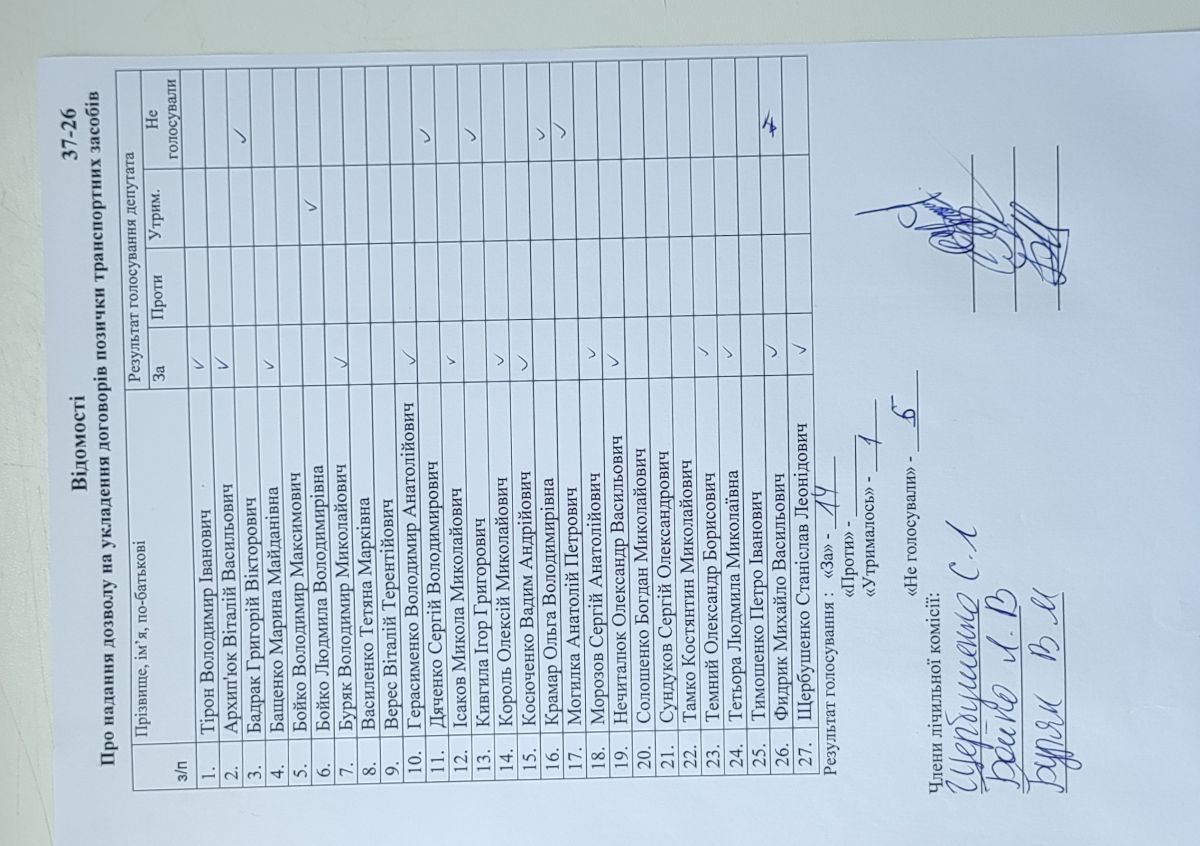 37-26
Відомості
Про надання дозволу на укладення договорів позички транспортних засобів
з/п Прізвище, ім’я, по-батькові Результат голосування депутата
За Проти Утрим. Не голосували
1. Тірон Володимир Іванович ✓
2. Архип'юк Віталій Васильович ✓
3. Бадрак Григорій Вікторович ✓
4. Бащенко Марина Майданівна ✓
5. Бойко Володимир Максимович
6. Бойко Людмила Володимирівна ✓
7. Буряк Володимир Миколайович ✓
8. Василенко Тетяна Марківна
9. Верес Віталій Терентійович
10. Герасименко Володимир Анатолійович ✓
11. Дяченко Сергій Володимирович ✓
12. Ісаков Микола Миколайович ✓
13. Кивгила Ігор Григорович ✓
14. Король Олексій Миколайович ✓
15. Косюченко Вадим Андрійович ✓
16. Крамар Ольга Володимирівна ✓
17. Могилка Анатолій Петрович ✓
18. Морозов Сергій Анатолійович ✓
19. Нечиталюк Олександр Васильович ✓
20. Солошенко Богдан Миколайович
21. Сундуков Сергій Олександрович
22. Тамко Костянтин Миколайович
23. Темний Олександр Борисович ✓
24. Тетьора Людмила Миколаївна ✓
25. Тимошенко Петро Іванович
26. Фидрик Михайло Васильович ✓
27. Щербушенко Станіслав Леонідович ✓
Результат голосування : «За» - 14
«Проти» -
«Утрималось» - 1
«Не голосували» - 5
Члени лічильної комісії:
Щербушенко С. Л
Бойко Л. В
Буряк В М